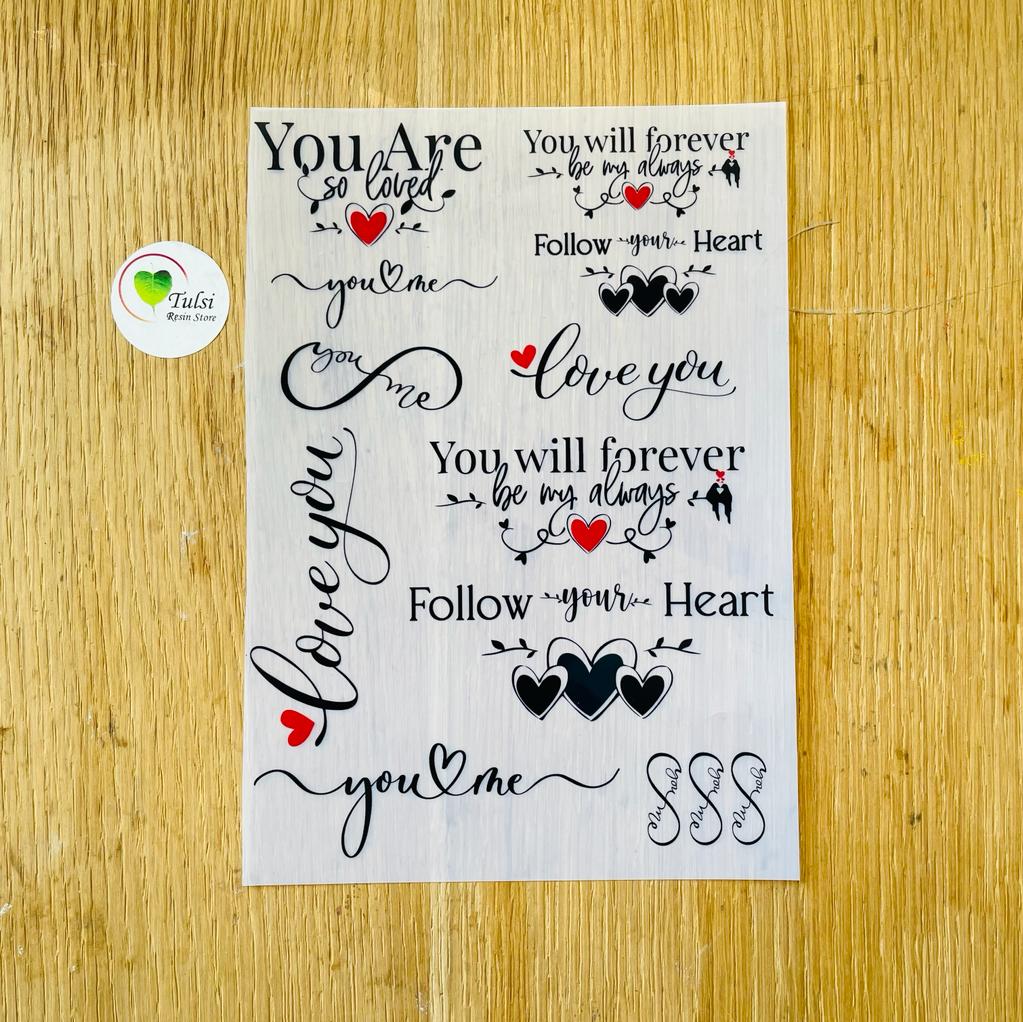 You Are
so loved
You will forever
be my always
Follow your Heart
you me
Tulsi
Resin Store
you
me
love you
love you
You will forever
be my always
Follow your Heart
you me
you
me
you
me
you
me